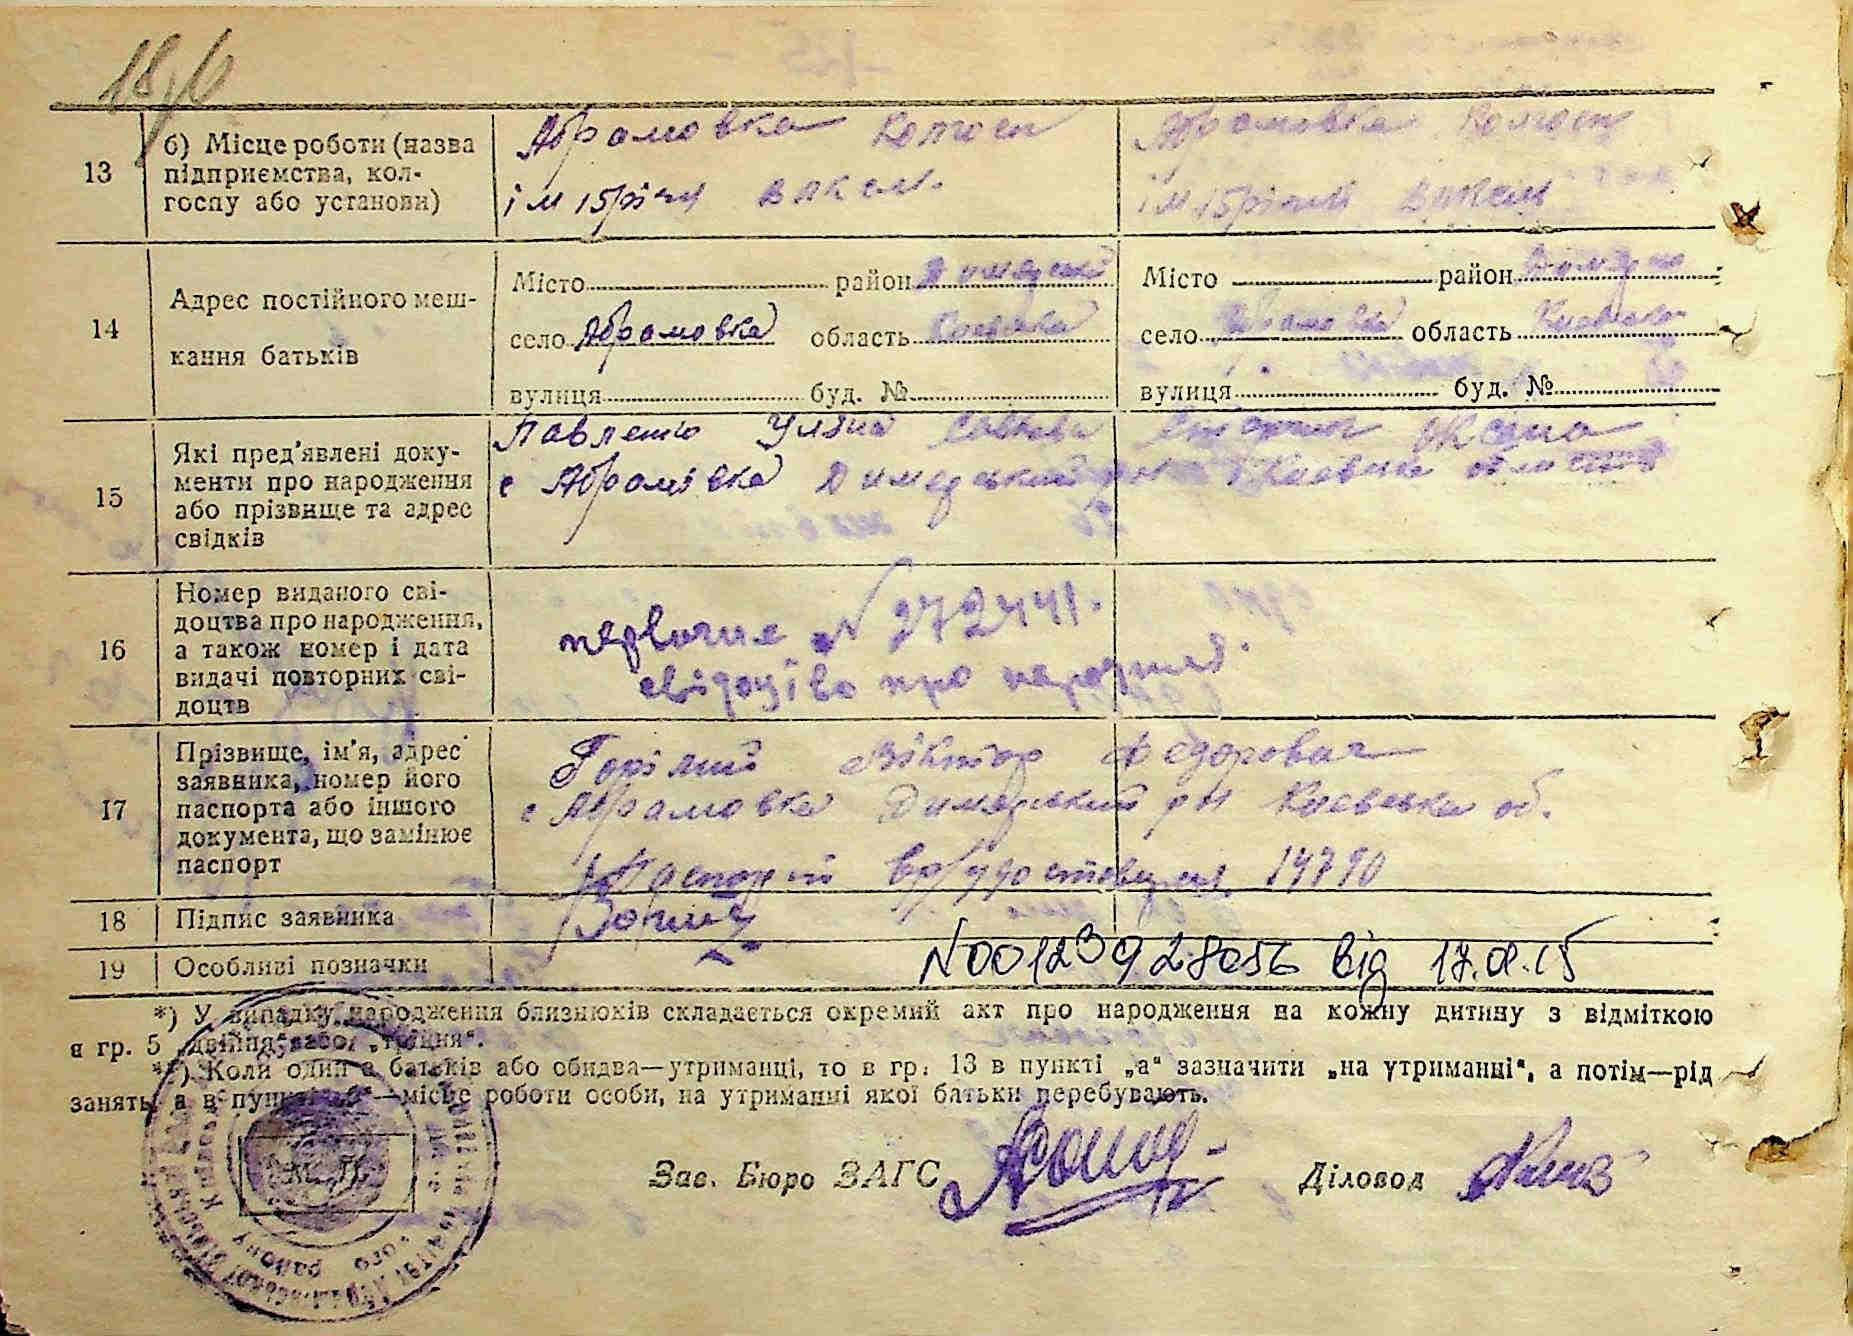 18/6
13
б) Місце роботи (назва
підприємства, кол-
госпу або установи)
Абрамовка колгосп
ім 15 річчя влксм.
Абрамовка колгосп
ім 15 річчя влксм
14
Адрес постійного меш-
кання батьків
Місто район Димерський
село Абрамовка область Киевська
вулиця буд. №
Місто район
село Абрамовка область Киевська
вулиця буд. №
15
Які пред'явлені доку-
менти про народження
або прізвище та адрес
свідків
Павленко Уляна Оксана
с Абрамівка Димерський рн Киевська область
16
Номер виданого сві-
доцтва про народження,
а також номер і дата
видачі повторних сві-
доцтв
первичне N 272441.
свідоцтво про народжен.
17
Прізвище, ім'я, адрес
заявника, номер його
паспорта або іншого
документа, що замінює
паспорт
Горілий Віктор Федорович
с Абрамовка Димерський рн Киевська об.
14790
18
Підпис заявника
19
Особливі позначки
N00123928056 від 17.01.15
*) У випадку народження близнюків складається окремий акт про народження на кожну дитину з відміткою
в гр. 5 „двійня" або „трійня".
**) Коли один з батьків або обидва—утриманці, то в гр. 13 в пункті „а" зазначити „на утриманні", а потім—рід
занять, а в пункті „б"—місце роботи особи, на утриманні якої батьки перебувають.
М. П.
району
Зав. Бюро ЗАГС
Діловод